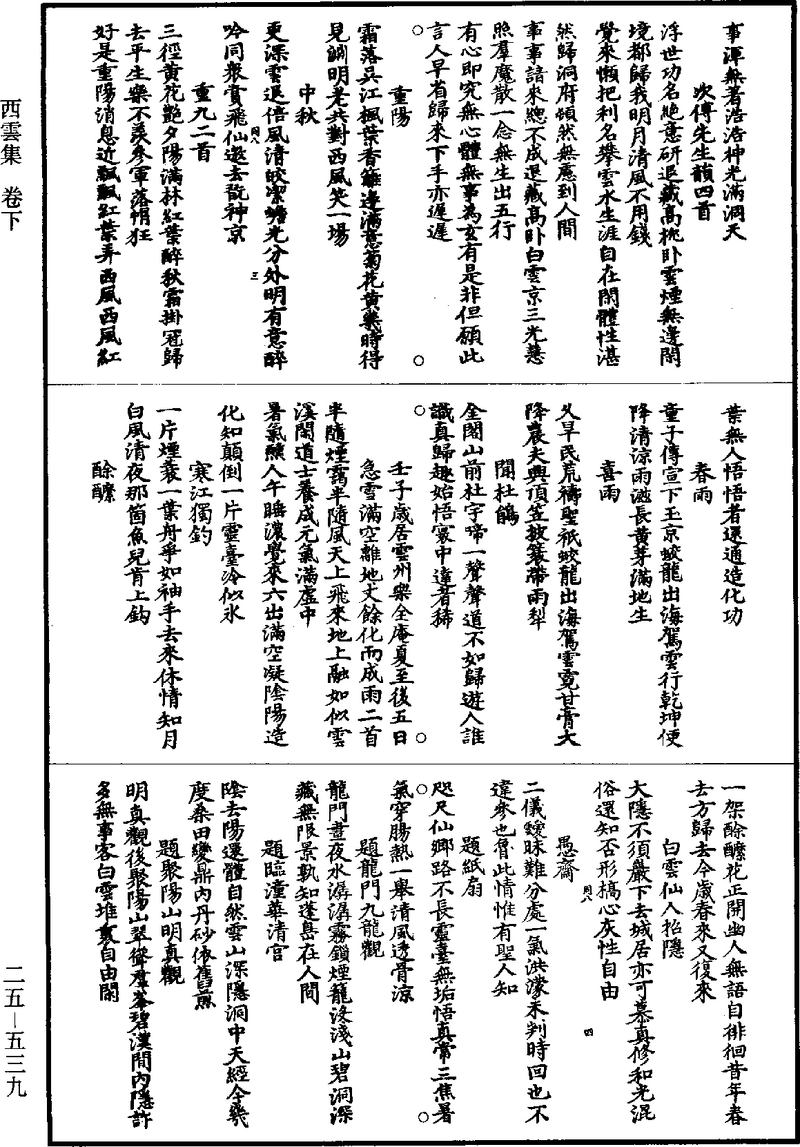 西雲集 卷下
事渾無著浩浩神光滿洞天
次傅先生韻四首
浮世功名絕意研退藏高枕臥雲煙無邊閑
境都歸我明月清風不用錢
覺來懶把利名攀雲水生涯自在閑體性湛
然歸洞府頹然無應到人間
事事諳來總不成退藏高臥白雲京三光慧
照羣魔散一念無生出五行
有心即究無心體無事為玄有是非但願此
言人早省歸來下手亦遲遲
重陽
霜落吳江楓葉香籬邊滿意菊花黃幾時得
見淵明老共對西風笑一場
中秋
更深雲退倍風清皎潔蟾光分外明有意醉
吟同衆賞飛仙邀去翫神京
重九二首
三徑黃花艷夕陽滿林紅葉醉秋霜掛冠歸
去平生樂不羨參軍落帽狂
好是重陽消息近飄飄紅葉弄西風西風紅
葉無人悟悟者還通造化功
春雨
童子傳宣下玉京蛟龍出海駕雲行乾坤便
降清涼雨滋長黃芽滿地生
喜雨
久旱民荒禱聖祇蛟龍出海駕雲霓甘膏大
降農夫興頂笠披簑帶雨犁
聞杜鵑
金閣山前杜宇啼一聲聲道不如歸遊人誰
識真歸趣始悟寰中達者稀
壬子歲居雲州樂全庵夏至後五日
急雪滿空離地丈餘化而成雨二首
半隨煙靄半隨風天上飛來地上融如似雲
溪閑道士養成元氣滿虛中
暑氣熏人午睡濃覺來六出滿空凝陰陽造
化知顛倒一片靈臺冷似氷
寒江獨釣
一片煙簑一葉舟爭如袖手去來休情知月
白風清夜那箇魚兒肯上鈎
酴醾
一架酴醾花正開幽人無語自徘徊昔年春
去方歸去今歲春來又復來
白雲仙人招隱
大隱不須巖下去城居亦可慕真修和光混
俗還知否形槁心灰性自由
愚齋
二儀曖昧難分處一氣洪濛未判時回也不
違參也魯此情惟有聖人知
題紙扇
咫尺仙鄉路不長靈臺無垢悟真常三焦暑
氣穿腸熱一舉清風透骨涼
題龍門九龍觀
龍門晝夜水潺潺霧鎖煙籠沒淺山碧洞深
藏無限景孰知蓬島在人間
題臨潼華清宮
陰去陽還體自然雲山深隱洞中天經今幾
度桑田變鼎內丹砂依舊煎
題聚陽山明真觀
明真觀後聚陽山翠從羣峯碧漢間內隱許
多無事客白雲堆裏自由閑
二五—五三九